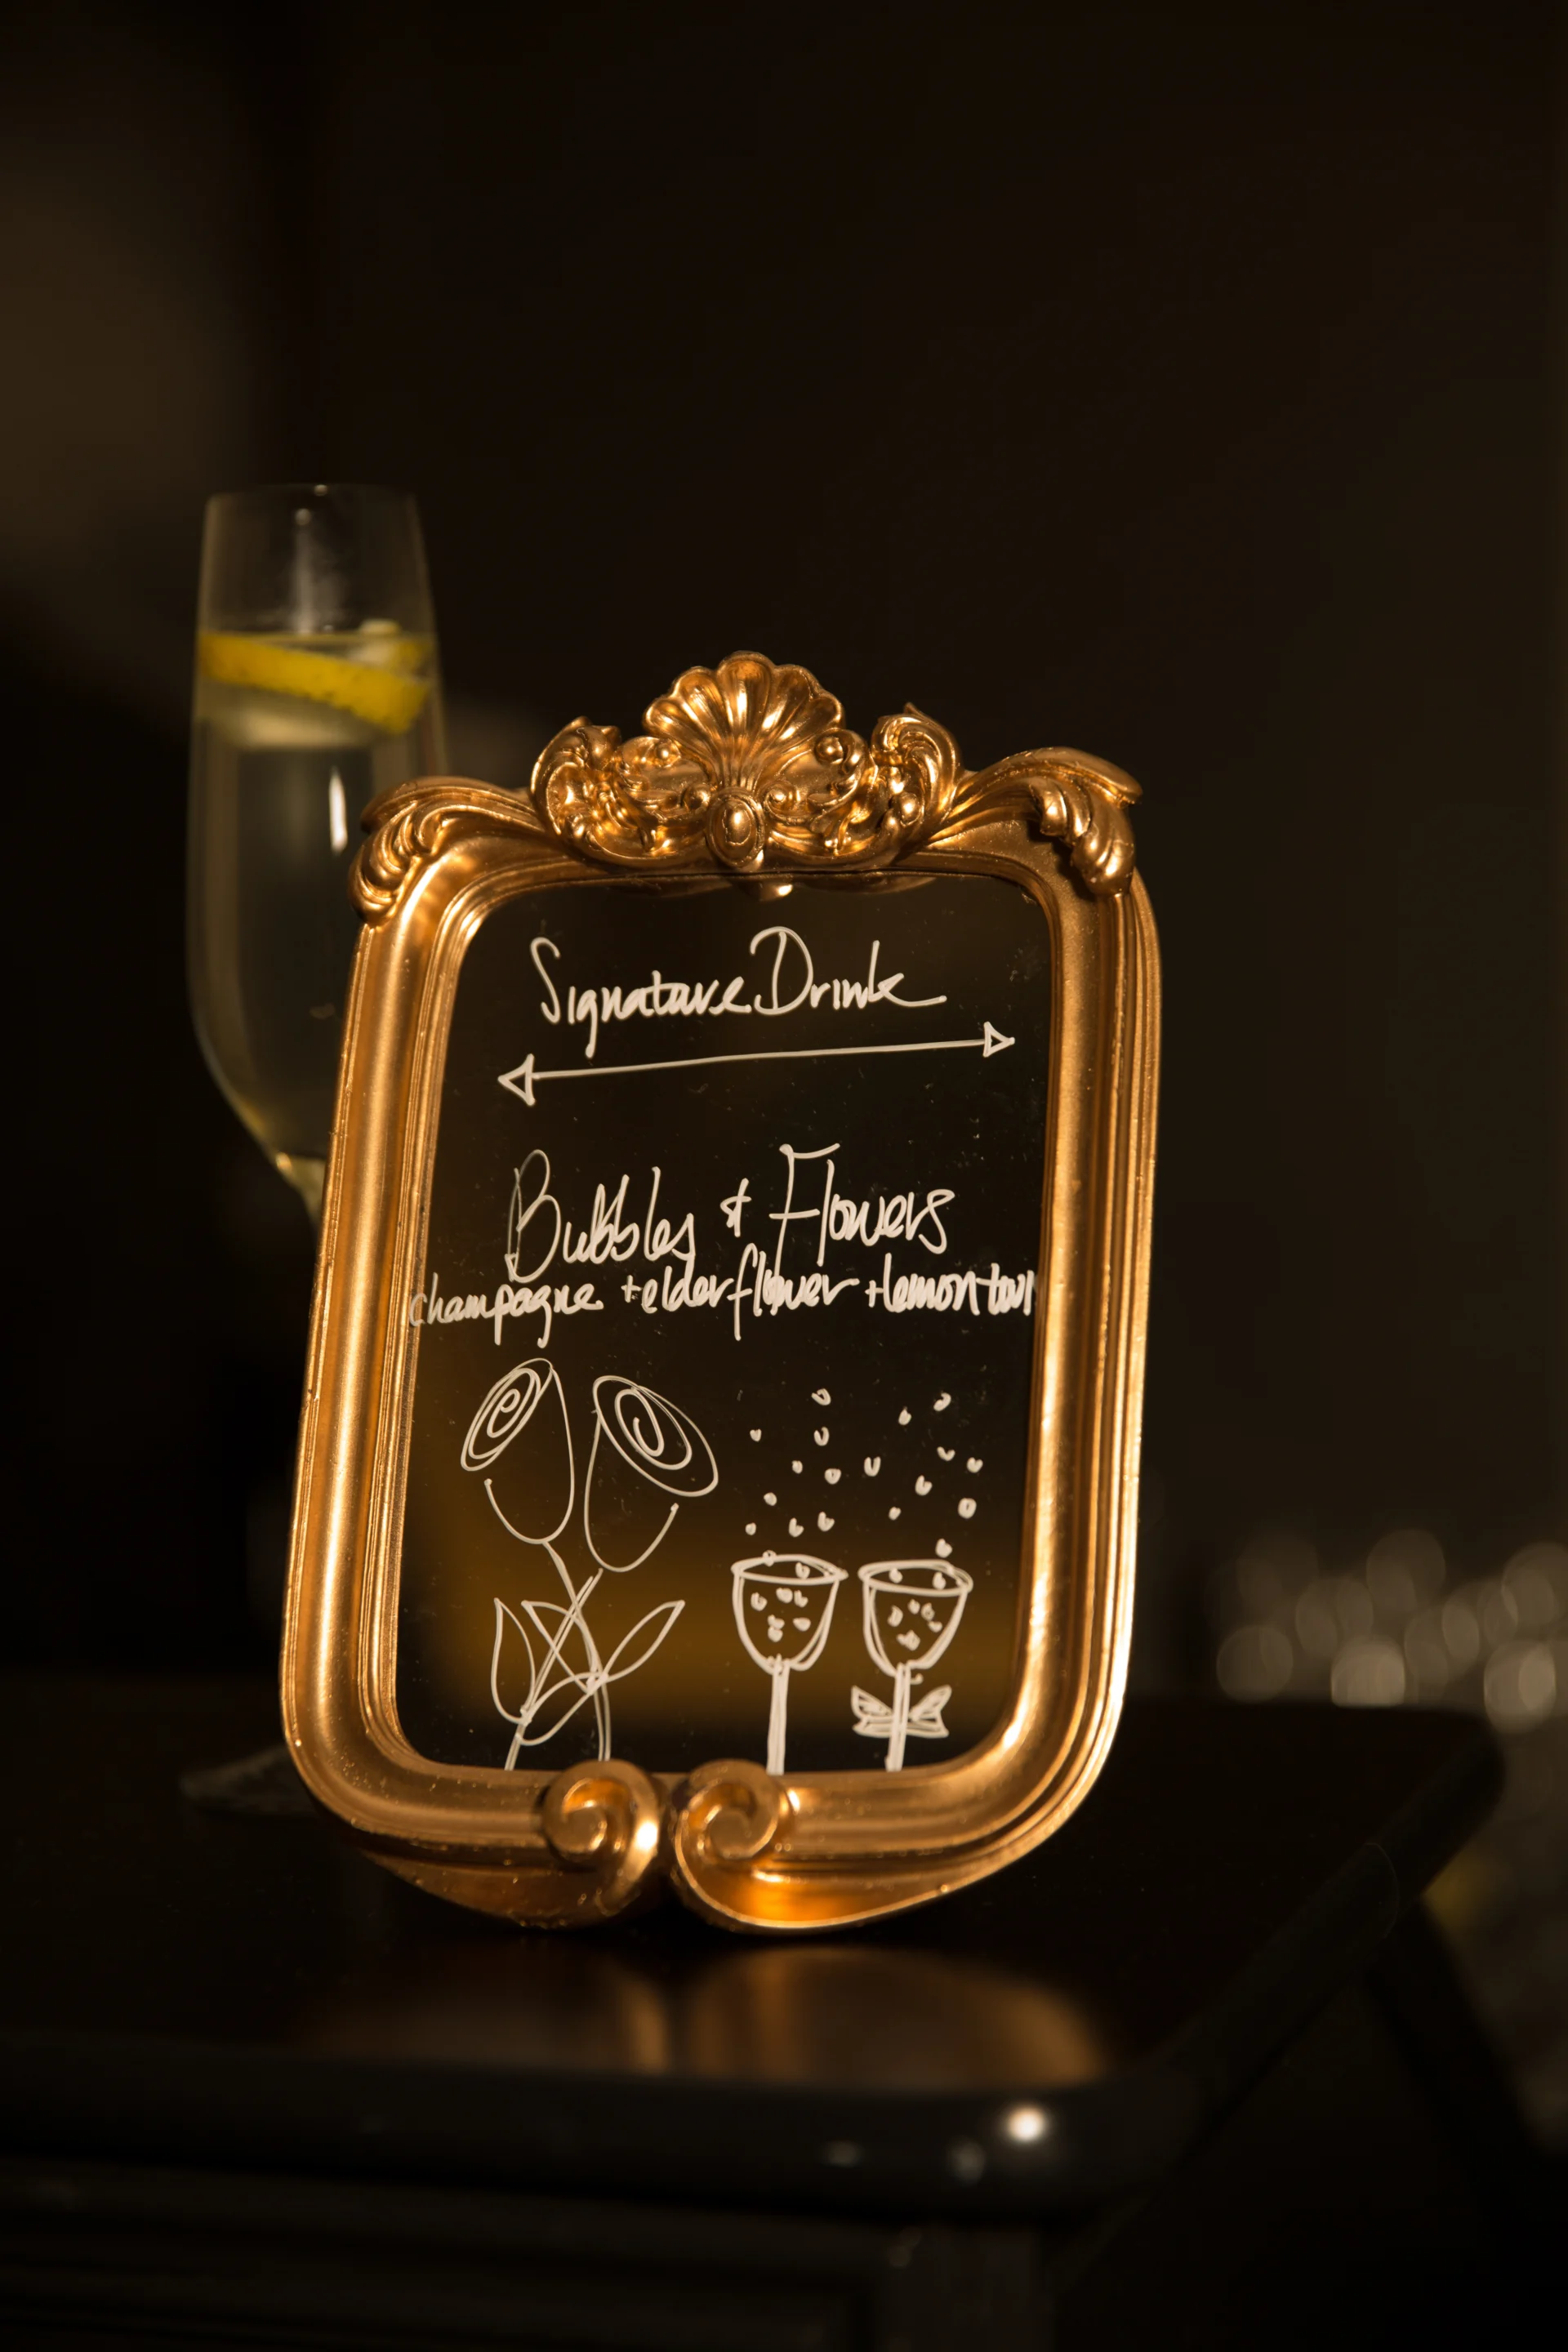 Signature Drink
Bubbles & Flowers
champagne + elderflower + lemon